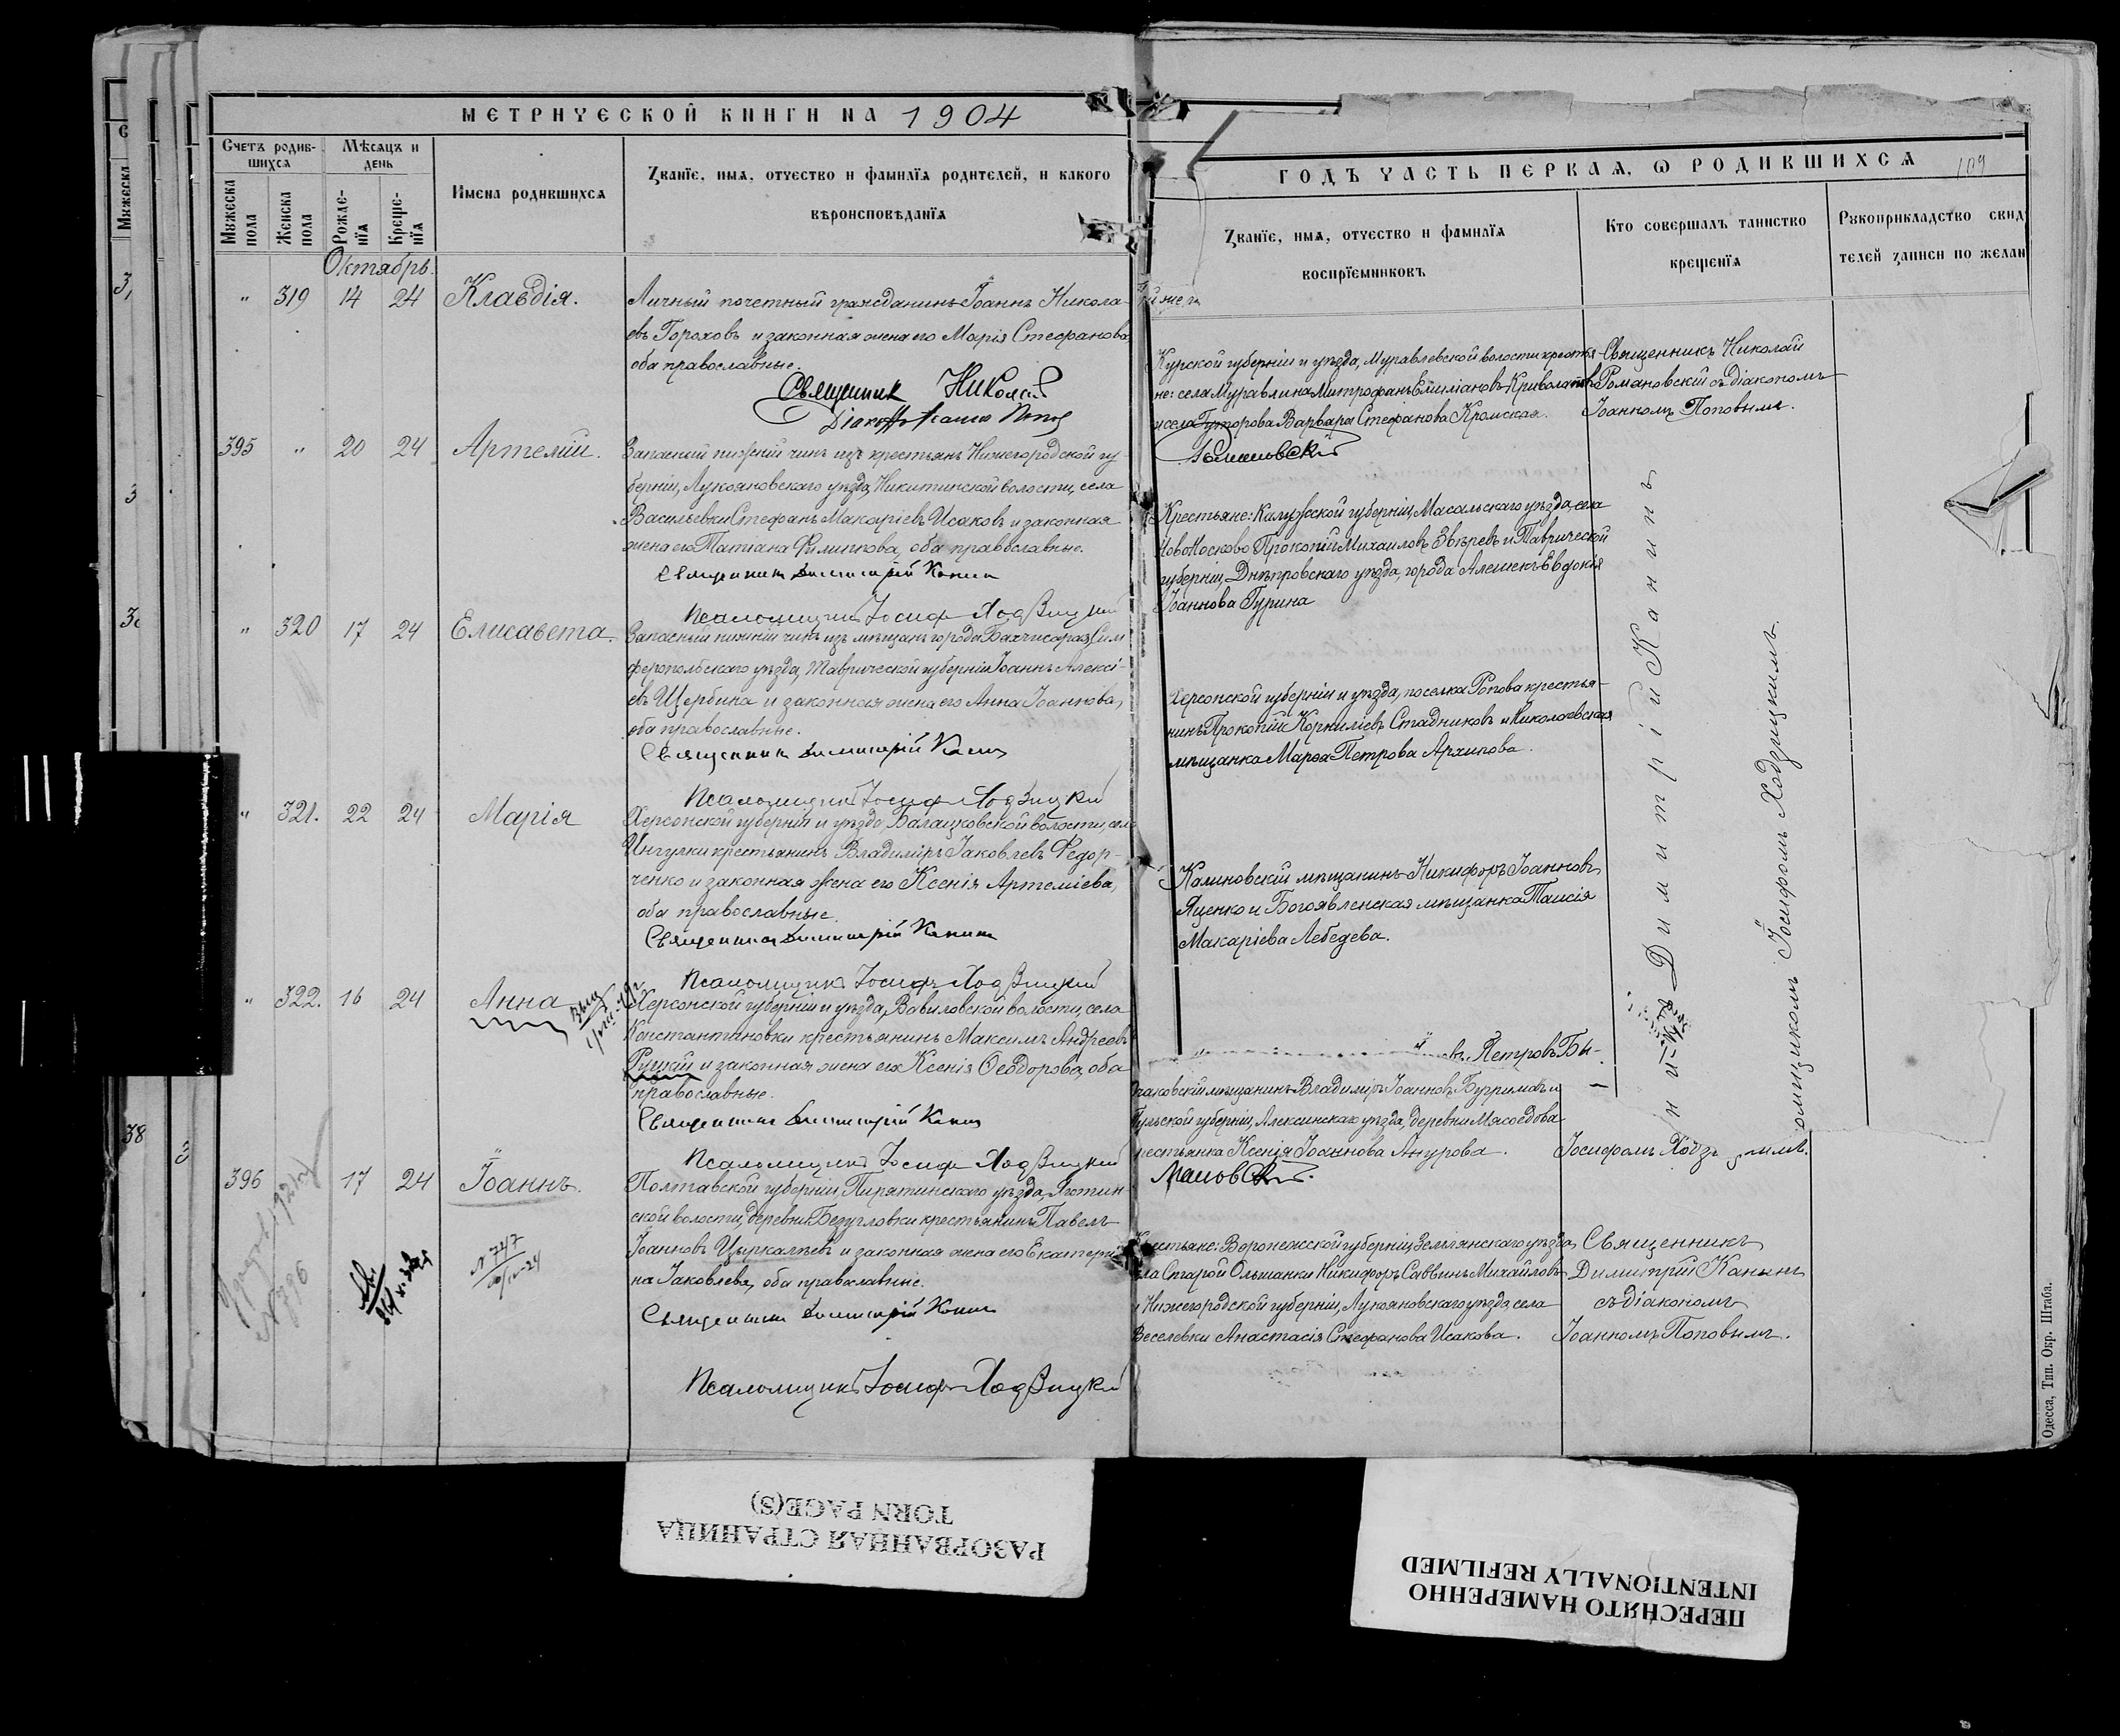 МЕТРИЧЕСКОЙ КНИГИ НА 1904
Счетъ родившихся
Мѣсяцъ и день
Имена родившихся
Званїе, имя, отчество и фамилїя родителей, и какого вѣроисповѣданїя
Мужеска пола
Женска пола
Рожденїя
Крещенїя
Октябрь.
" 319 14 24 Клавдія.
Личный почетный гражданинъ Іоаннъ Никола-
евъ Гороховъ и законная жена его Марія Стефанова,
оба православные.
Священникъ Николай
Діаконъ Іоаннъ Попов
395 " 20 24 Артемій.
Запасный нижній чинъ изъ крестьянъ Нижегородской гу-
берніи, Лукояновскаго уѣзда, Никитинской волости, села
Васильевки Стефанъ Макаріевъ Исаковъ и законная
жена его Татіана Филипкова, оба православные.
Священникъ Димитрій Канинъ
Псаломщикъ Іосифъ Ходзицкій
" 320 17 24 Елисавета.
Запасный нижній чинъ изъ мѣщанъ города Бахчисарая, Сим-
феропольскаго уѣзда, Таврической губерніи Іоаннъ Алексі-
евъ Щербина и законная жена его Анна Іоаннова,
оба православные.
Священникъ Димитрій Канинъ
Псаломщикъ Іосифъ Ходзицкій
" 321. 22 24 Марія
Херсонской губерніи и уѣзда, Балацковской волости, села
Ингулки крестьянинъ Владиміръ Іаковлевъ Федор-
ченко и законная жена его Ксенія Артеміева,
оба православные.
Священникъ Димитрій Канинъ
Псаломщикъ Іосифъ Ходзицкій
" 322. 16 24 Анна
Херсонской губерніи и уѣзда, Вавиловской волости, села
Константиновки крестьянинъ Максимъ Андреевъ
Руцкій и законная жена его Ксенія Ѳеодорова, оба
православные.
Священникъ Димитрій Канинъ
Псаломщикъ Іосифъ Ходзицкій
396 17 24 Іоаннъ.
Полтавской губерніи, Пирятинскаго уѣзда, Яготин-
ской волости, деревни Безугловки крестьянинъ Павелъ
Іоанновъ Цыркалѣевъ и законная жена его Екатери-
на Іаковлева, оба православные.
Священникъ Димитрій Канинъ
Псаломщикъ Іосифъ Ходзицкій
N 747
N 796
ГОДЪ ЧАСТЬ ПЕРВАЯ, Ѡ РОДИВШИХСЯ 109
Званїе, имя, отчество и фамилїя воспрїемниковъ
Кто совершалъ таинство крещенїя
Рукоприкладство свид
телей записи по желан
Курской губерніи и уѣзда, Муравлевской волости крестья-
не: села Муравлина Митрофанъ Емиліановъ Криволаповъ
и села Гуторова Варвара Стефанова Кромская.
Священникъ Николай
Романовскій съ діакономъ
Іоанномъ Поповымъ.
Романовскій
Крестьяне: Калужской губерніи, Масальскаго уѣзда, села
НовоНосково Прокопій Михаиловъ Звѣревъ и Таврической
губерніи, Днѣпровскаго уѣзда, города Алешекъ Евдокія
Іоаннова Гурина
Херсонской губерніи и уѣзда, поселка Ропова крестья-
нинъ Прокопій Корниліевъ Стадниковъ и Николаевская
мѣщанка Марѳа Петрова Архипова.
Калиновскій мѣщанинъ Никифоръ Іоанновъ
Яценко и Богоявленская мѣщанка Таисія
Макаріева Лебедева.
Димитрій Канинъ
омщикомъ Іосифомъ Ходзицкимъ.
въ Петровъ Бы-
чаковскій мѣщанинъ Владиміръ Іоанновъ Бугримовъ и
Тульской губерніи, Алексинскаго уѣзда, деревни Мясоедова
рестьянка Ксенія Іоаннова Анурова.
Іосифомъ Ходз имъ.
мановскій.
Крестьяне: Воронежской губерніи, Землянскаго уѣзда,
ла Старой Ольшанки Никифоръ Саввинъ Михайловъ
и Нижегородской губерніи, Лукояновскаго уѣзда, села
Веселевки Анастасія Стефанова Исакова.
Священникъ
Димитрій Канинъ
съ діакономъ
Іоанномъ Поповымъ.
Одесса, Тип. Окр. Штаба.
РАЗОРВАННАЯ СТРАНИЦА
TORN PAGE(S)
ПЕРЕСНЯТО НАМЕРЕННО
INTENTIONALLY REFILMED